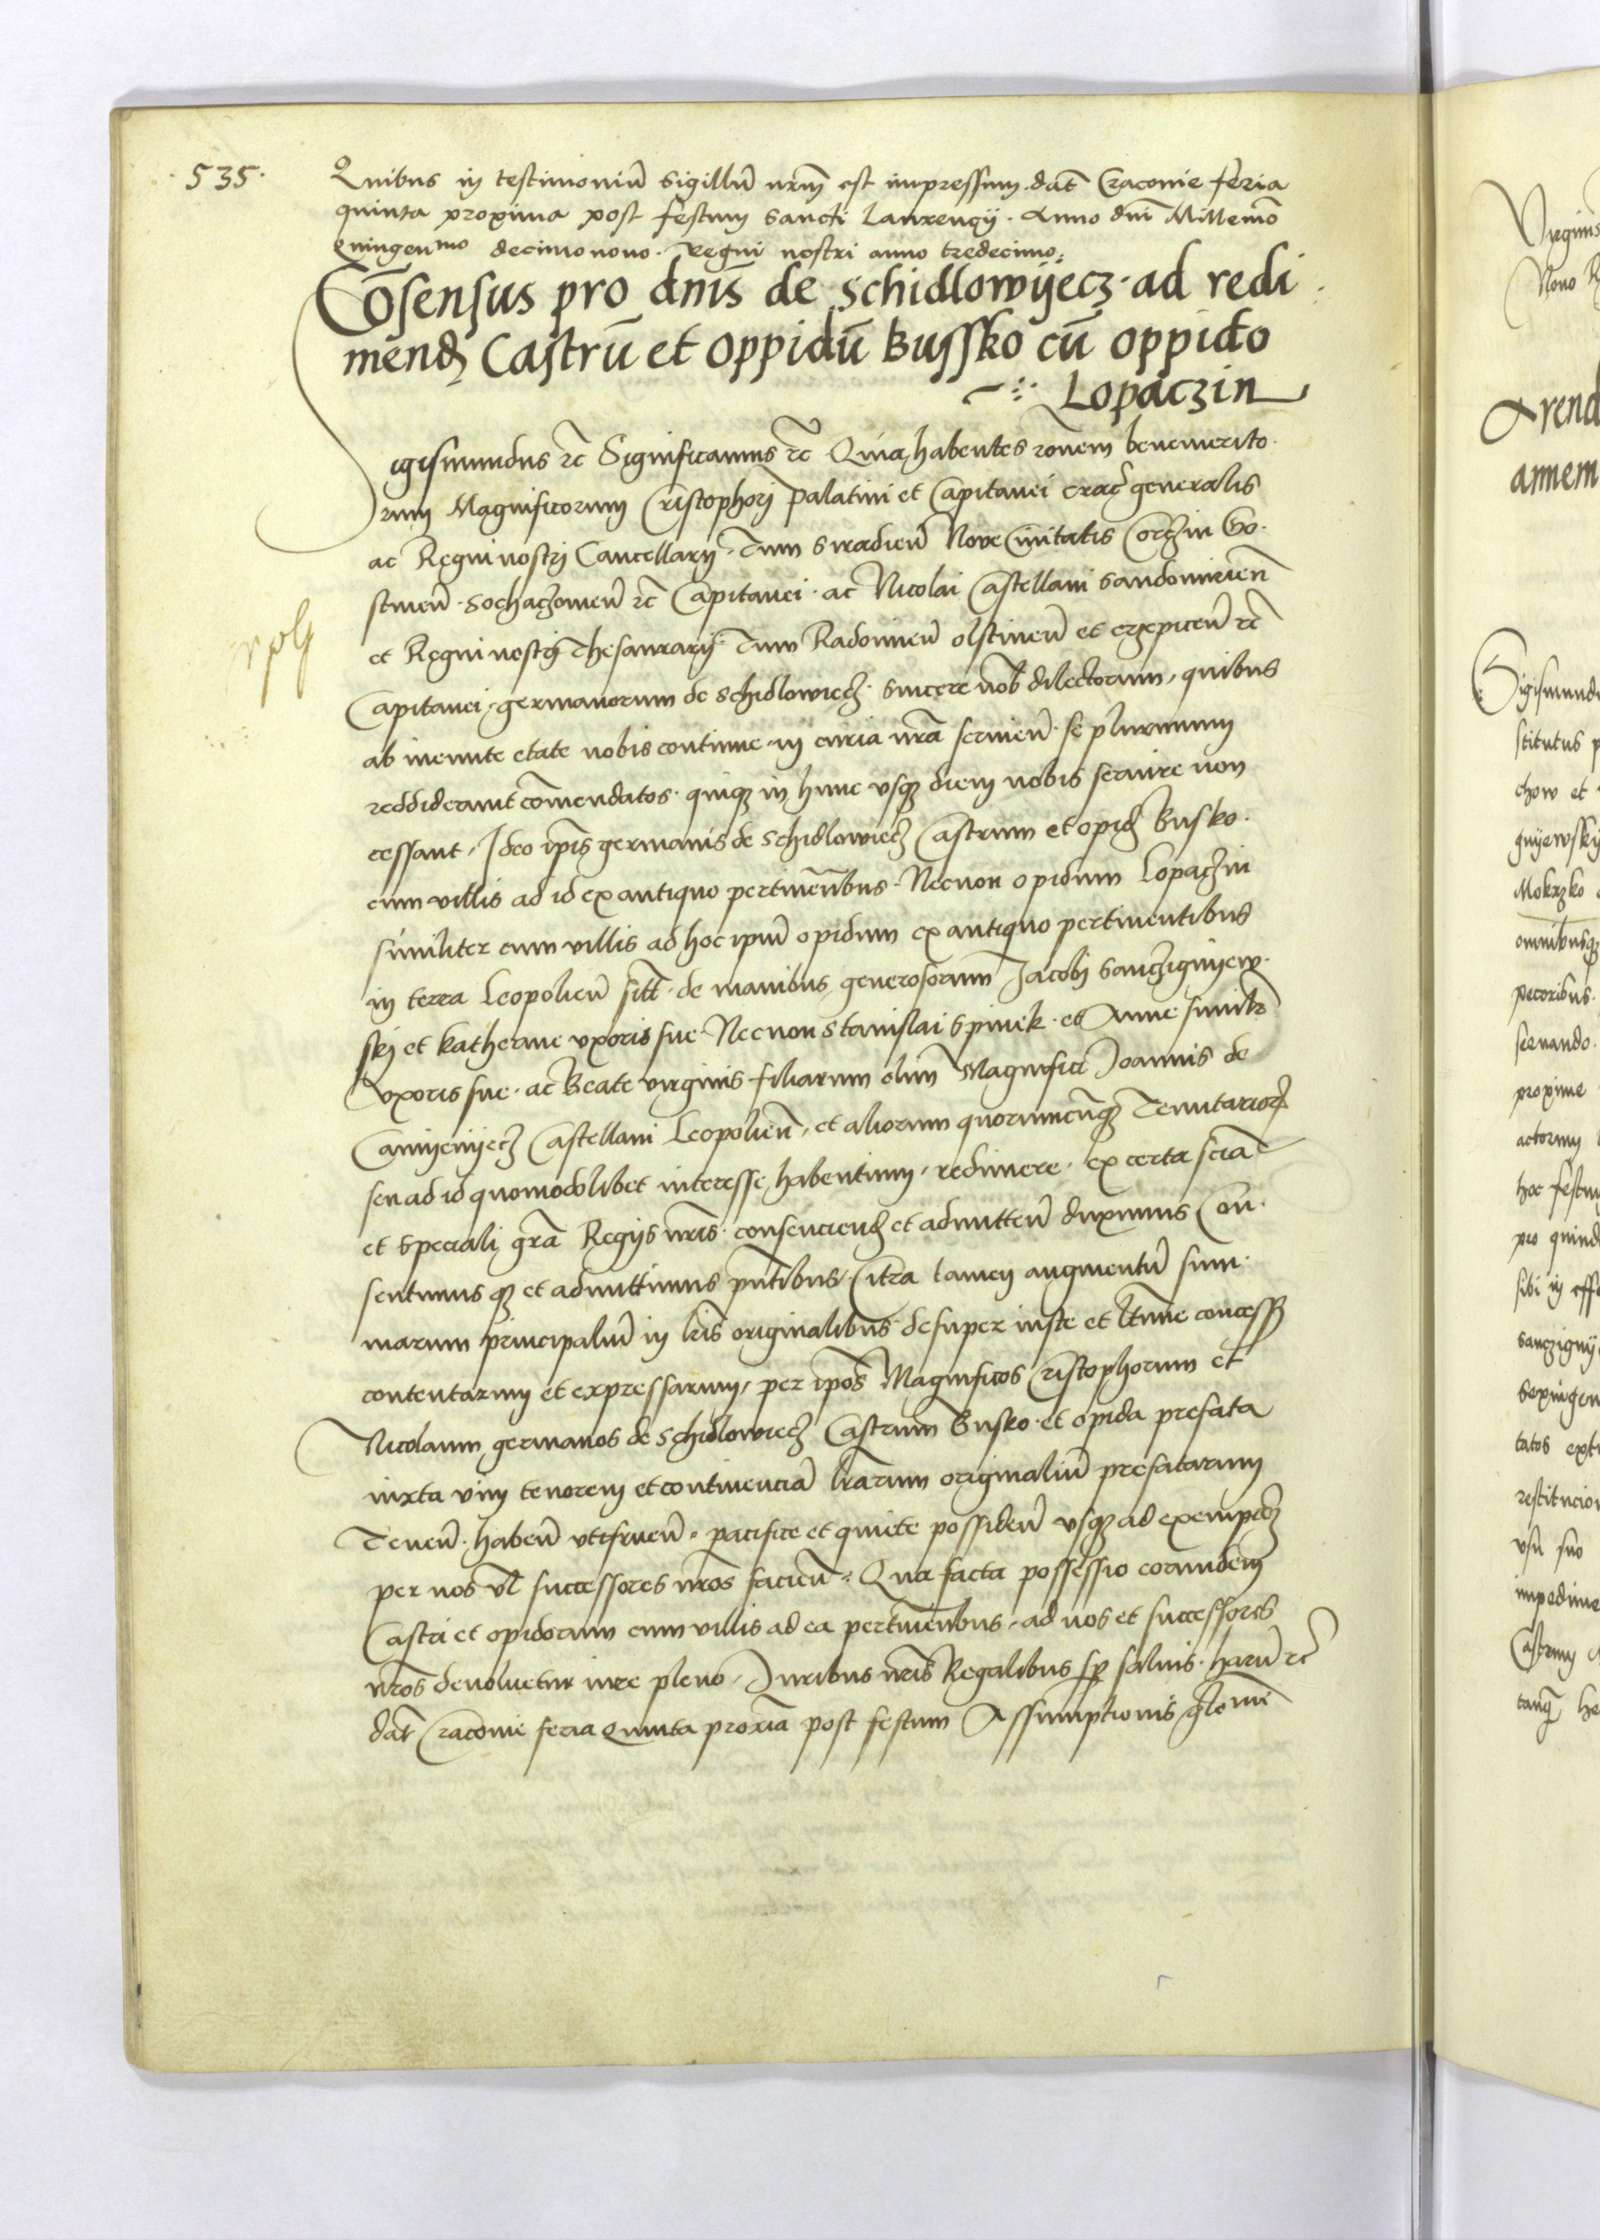 535.
Quibus in testimoniū sigillū nrm̄ est impressum. dat̄ Cracouie feria
quinta proxima post festum Sancti Laurencij. Anno dnī Millemo
Quingenmo decimonono. Regni nostri anno tredecimo:
Cōsensus pro dnis̄ de Schidlowyecz. ad redi
mend Castrū et Oppidū Bussko cū oppido
Lopaczin
igismundus rc̄ Significamus rc̄ Quia habentes rōnem benemerito
rum Magnificorum Cristophori Palatini et Capitanei crac̄ generalis
ac Regni nostri Cancellarij. Tum Siradien̄ Noue Ciuitatis Corczin Go
stinen̄. Sochaczouien̄ rc̄ Capitanei. ac Nicolai Castellani Sandomirien̄
et Regni nostri Thesaurarij. Tum Radomien̄ olstinen̄ et crzepicen̄ rc̄
Capitanei. germanorum de Schidlowiecz. Sincere nob̄ dilectorum, quibus
ab ineunte etate nobis continue. in curia nrā seruien̄. se plurimum
reddiderunt cōmendatos. quiqz in hunc vsqz diem nobis seruire non
cessant. Ideo ip̄is germanis de Schidlowiecz Castrum et opid Busko.
cum villis ad id ex antiquo pertinen̄bus. Necnon opidum Lopaczin
similiter cum villis ad hoc ipm̄ opidum ex antiquo pertinentibus
in terra Leopolien̄ sitt. de manibus generosorum Jacobi Sanczignyew
skj et Katherine vxoris sue. Necnon Stanislai Spinek. et Anne similr̄
vxoris sue. ac Beate virginis filiarum olim Magnifici Joannis de
Camyenyecz Castellani Leopolien̄, et aliorum quorumcūqz Tenutarior
seu ad id quomodolibet interesse habentium, redimere. ex certa sciā
et speciali grā Regijs nrīs. consenciend et admitten̄ duximus Con
sentimus qz et admittimus pn̄tibus. Citra tamen augmentū sum
marum principaliū in lrīs originalibus desuper iuste et ltīme concess
contentarum et expressarum, per ip̄os Magnificos Cristophorum et
Nicolaum germanos de Schidlowiecz Castrum Busko. et opida prefata
iuxta vim tenorem et continenciā lrārum originaliū prefatarum
Tenen̄. haben̄ vtifruen̄. pacifice et quiete possiden̄ vsqz ad exempcōz
per nos vl̄ successores nrōs facien̄. Qua facta possessio eorundem
Castri et opidorum cum villis ad ea pertinen̄bus, ad nos et successores
nrōs deuoluetur iure pleno. Juribus nrīs Regalibus sp̄ saluis. harū rc̄
dat̄ Cracouie feria Quinta proxīa post festum Assumptionis glōme